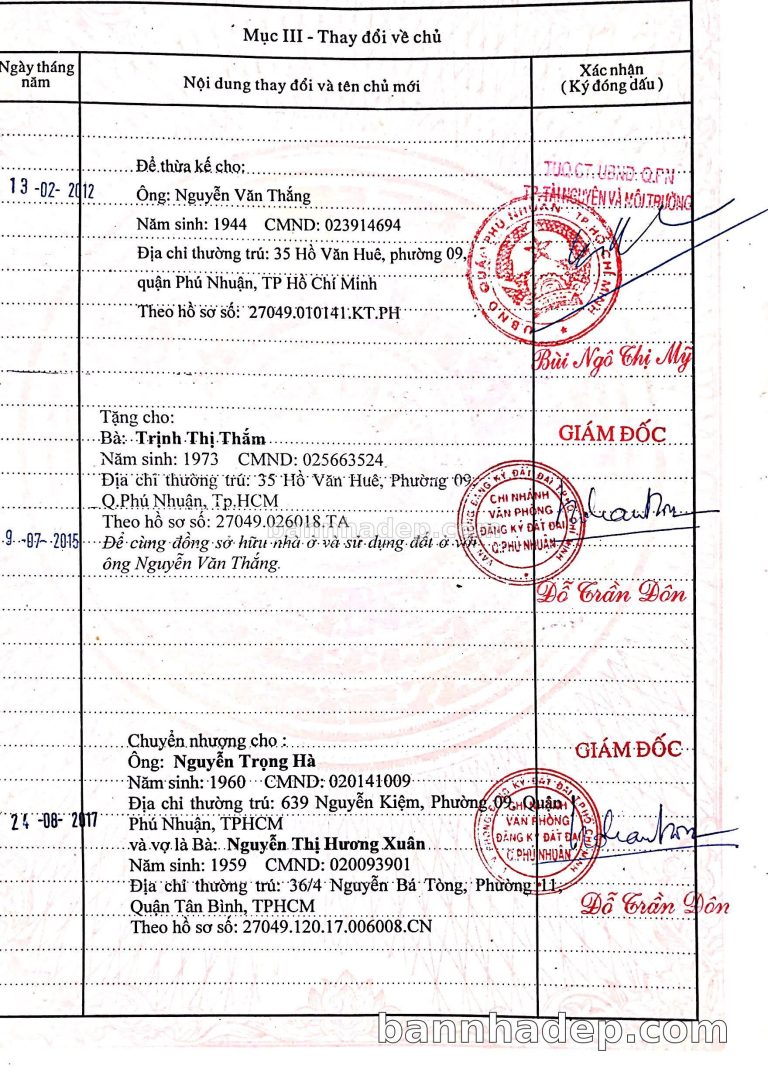 Mục III - Thay đổi về chủ
Ngày tháng năm
Nội dung thay đổi và tên chủ mới
Xác nhận
( Ký đóng dấu )
13-02-2012
Để thừa kế cho:
Ông: Nguyễn Văn Thắng
Năm sinh: 1944 CMND: 023914694
Địa chỉ thường trú: 35 Hồ Văn Huê, phường 09,
quận Phú Nhuận, TP Hồ Chí Minh
Theo hồ sơ số: 27049.010141.KT.PH
TUQ.CT.UBND.Q.PN
TP.TÀI NGUYÊN VÀ MÔI TRƯỜNG
U.B.N.D QUẬN PHÚ NHUẬN T.P HỒ CHÍ MINH
Bùi Ngô Thị Mỹ
Tặng cho:
Bà: Trịnh Thị Thắm
Năm sinh: 1973 CMND: 025663524
Địa chỉ thường trú: 35 Hồ Văn Huê, Phường 09,
Q.Phú Nhuận, Tp.HCM
Theo hồ sơ số: 27049.026018.TA
9-07-2015
Để cùng đồng sở hữu nhà ở và sử dụng đất ở với
ông Nguyễn Văn Thắng.
GIÁM ĐỐC
VĂN PHÒNG ĐĂNG KÝ ĐẤT ĐAI TP.HỒ CHÍ MINH
CHI NHÁNH
VĂN PHÒNG
ĐĂNG KÝ ĐẤT ĐAI
Q.PHÚ NHUẬN
Đỗ Trần Đôn
bannhadep.com
Chuyển nhượng cho :
Ông: Nguyễn Trọng Hà
Năm sinh: 1960 CMND: 020141009
Địa chỉ thường trú: 639 Nguyễn Kiệm, Phường 09, Quận
24-08-2017
Phú Nhuận, TPHCM
và vợ là Bà: Nguyễn Thị Hương Xuân
Năm sinh: 1959 CMND: 020093901
Địa chỉ thường trú: 36/4 Nguyễn Bá Tòng, Phường 11,
Quận Tân Bình, TPHCM
Theo hồ sơ số: 27049.120.17.006008.CN
GIÁM ĐỐC
CHI NHÁNH
VĂN PHÒNG
ĐĂNG KÝ ĐẤT ĐAI
Q.PHÚ NHUẬN
Đỗ Trần Đôn
bannhadep.com